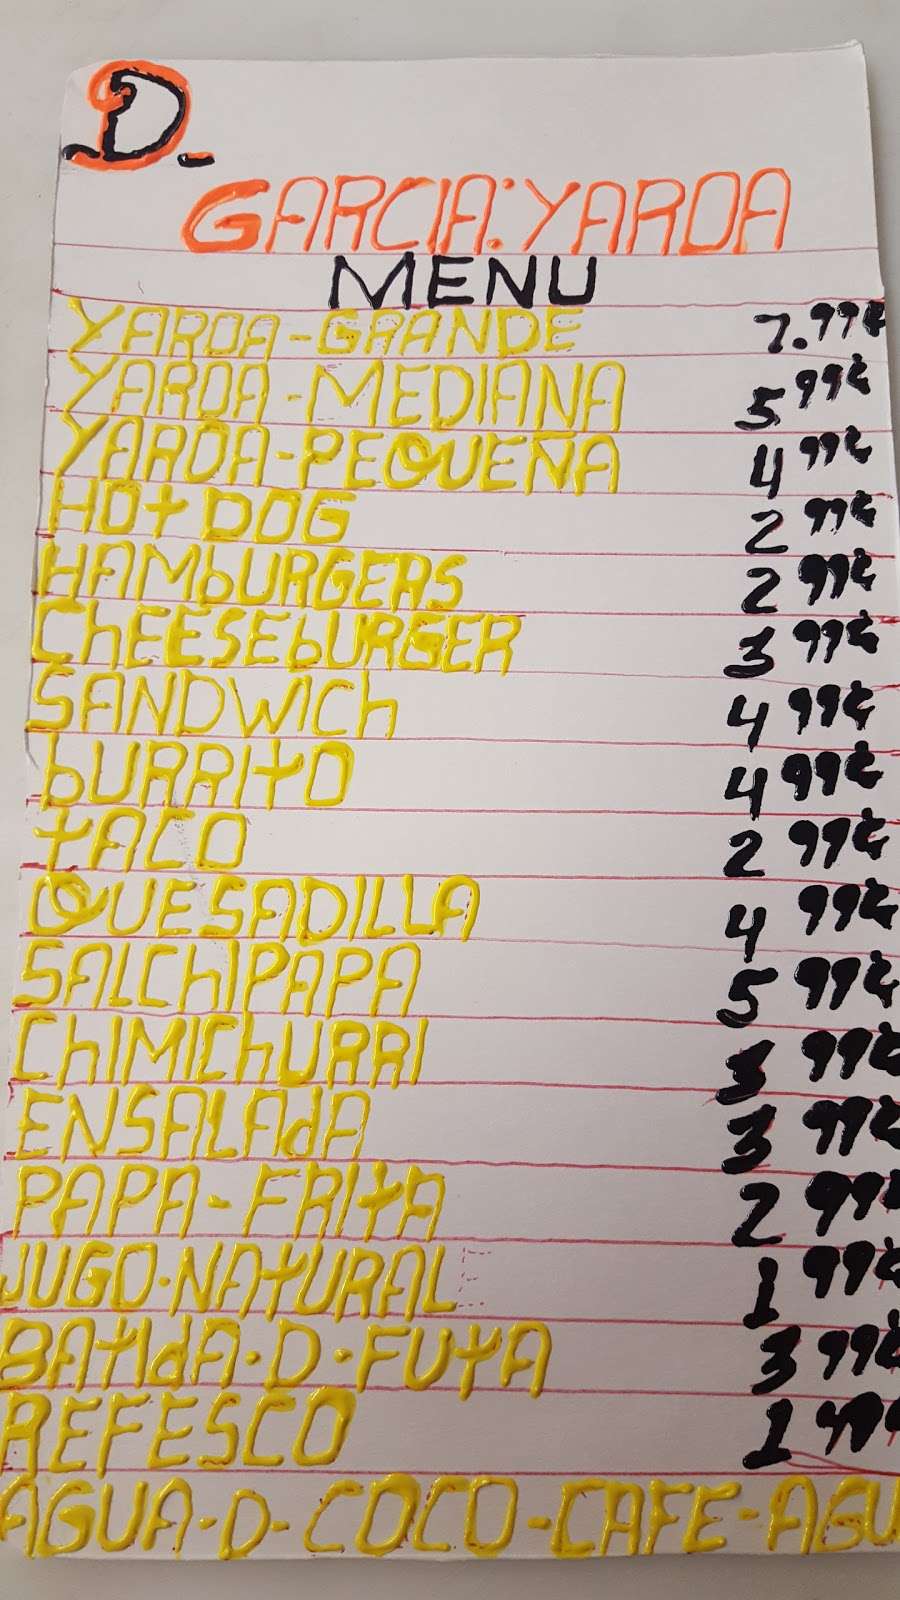 D.
GARCIA:YAROA
MENU
YAROA-GRANDE 7.99¢
YAROA-MEDIANA 5 99¢
YAROA-PEQUEÑA 4 99¢
HOt DOG 2 99¢
HAMbURGERS 2 99¢
ChEESEbURGER 3 99¢
SANDWICh 4 99¢
bURRItO 4 99¢
tACO 2 99¢
QUESADILLA 4 99¢
SALChIPAPA 5 99¢
ChIMIChURRI 3 99¢
ENSALAdA 3 99¢
PAPA-FRItA 2 99¢
JUGO·NAtURAL 1 99¢
BAtIdA·D·FUtA 3 99¢
REFESCO 1
AGUA-D-COCO-CAFE-AGU